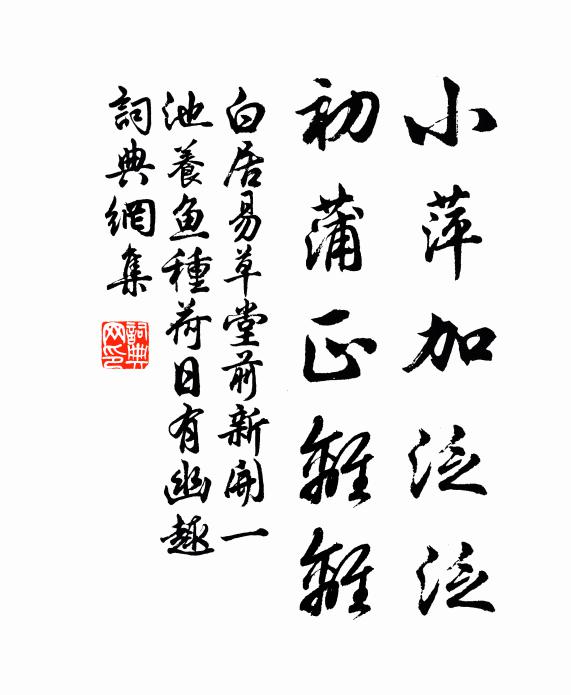 小萍加泛泛
初蒲正離離
白居易草堂前新開一
池養魚種荷日有幽趣
詞典網集
詞典
网印